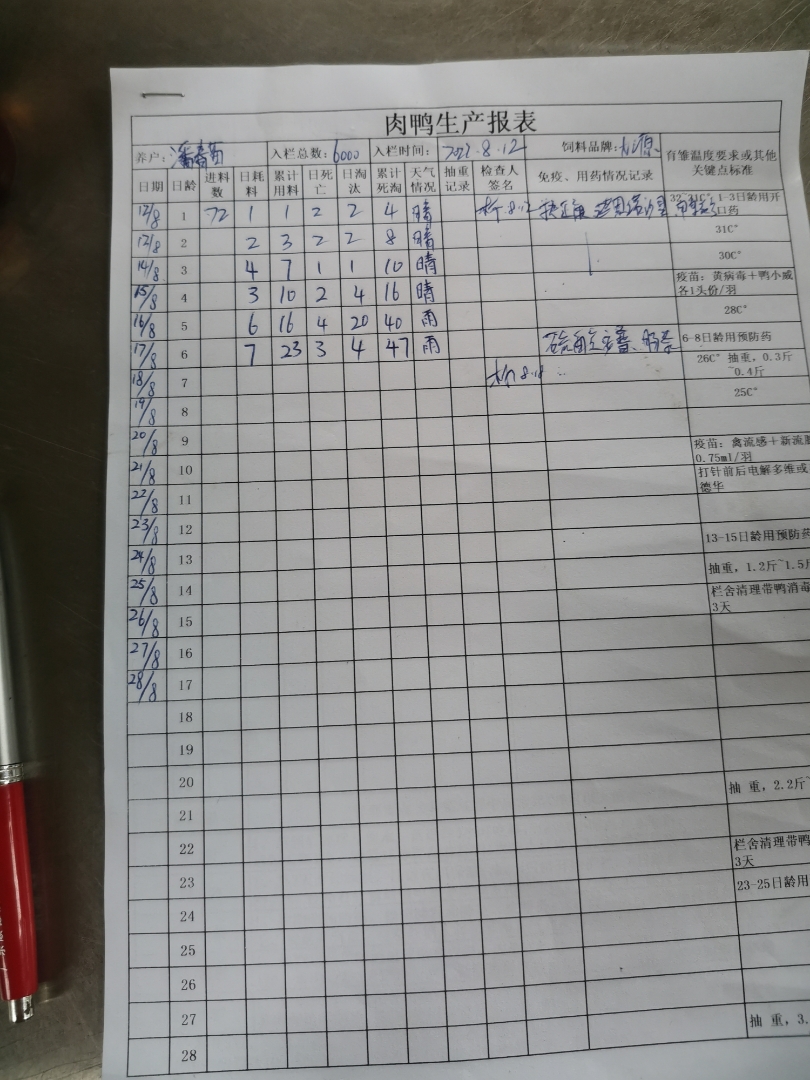 肉鸭生产报表
养户: 潘 入栏总数: 6000 入栏时间: 2022.8.12 饲料品牌: 育雏温度要求或其他关键点标准
日期 日龄 进料数 日耗料 累计用料 日死亡 日淘汰 累计死淘 天气情况 抽重记录 检查人签名 免疫、用药情况记录
12/8 1 72 1 1 2 2 4 晴 8.12 1-3日龄用开口药
12/8 2 2 3 2 2 8 晴 31C°
14/8 3 4 7 1 1 10 晴 30C°
15/8 4 3 10 2 4 16 晴 疫苗: 黄病毒+鸭小威各1头份/羽
16/8 5 6 16 4 20 40 雨 28C°
17/8 6 7 23 3 4 47 雨 硫酸 6-8日龄用预防药
18/8 7 8.18 26C° 抽重, 0.3斤~0.4斤
19/8 8 25C°
20/8 9
21/8 10 疫苗: 禽流感+新流 0.75ml/羽
22/8 11 打针前后电解多维或 德华
23/8 12
24/8 13 13-15日龄用预防药
25/8 14 抽重, 1.2斤~1.5斤
26/8 15 栏舍清理带鸭消毒 3天
27/8 16
28/8 17
18
19
20
21 抽 重, 2.2斤~
22
23 栏舍清理带鸭 3天
24 23-25日龄用
25
26
27
28 抽 重, 3.